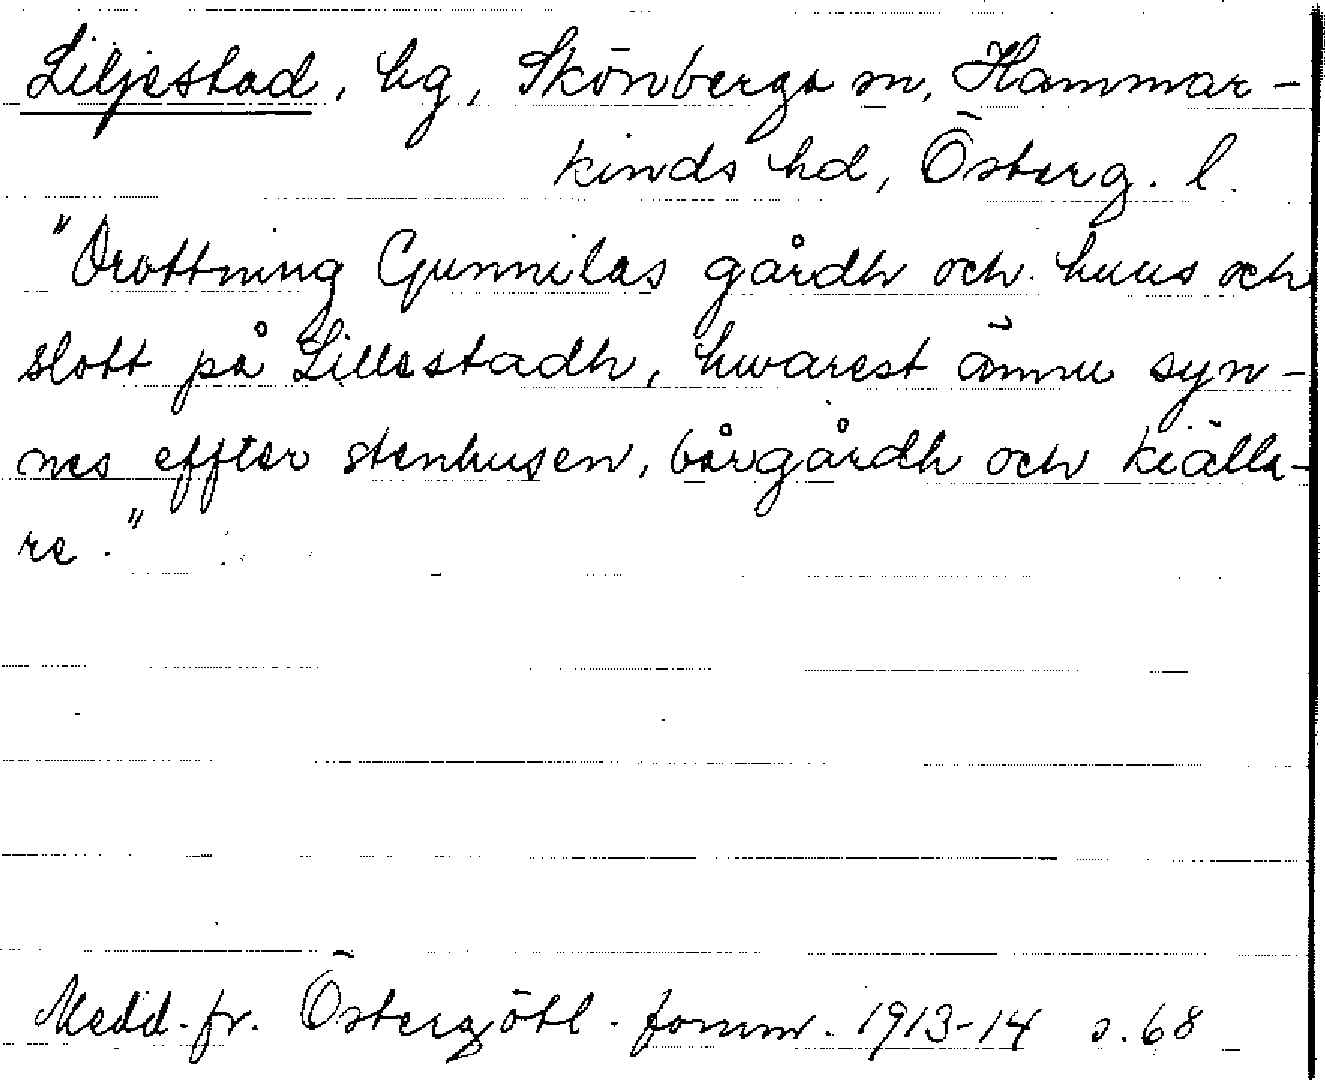 Liljestad, hg, Skönberga sn, Hammar-
kinds hd, Österg. l.
"Drottning Gunnilas gårdh och huus och
slott på Lillestadh, hwarest ännu syn-
nes effter stenhusen, bårgårdh och kiälla-
re."
Medd. fr. Östergötl. fornm. 1913-14 s. 68